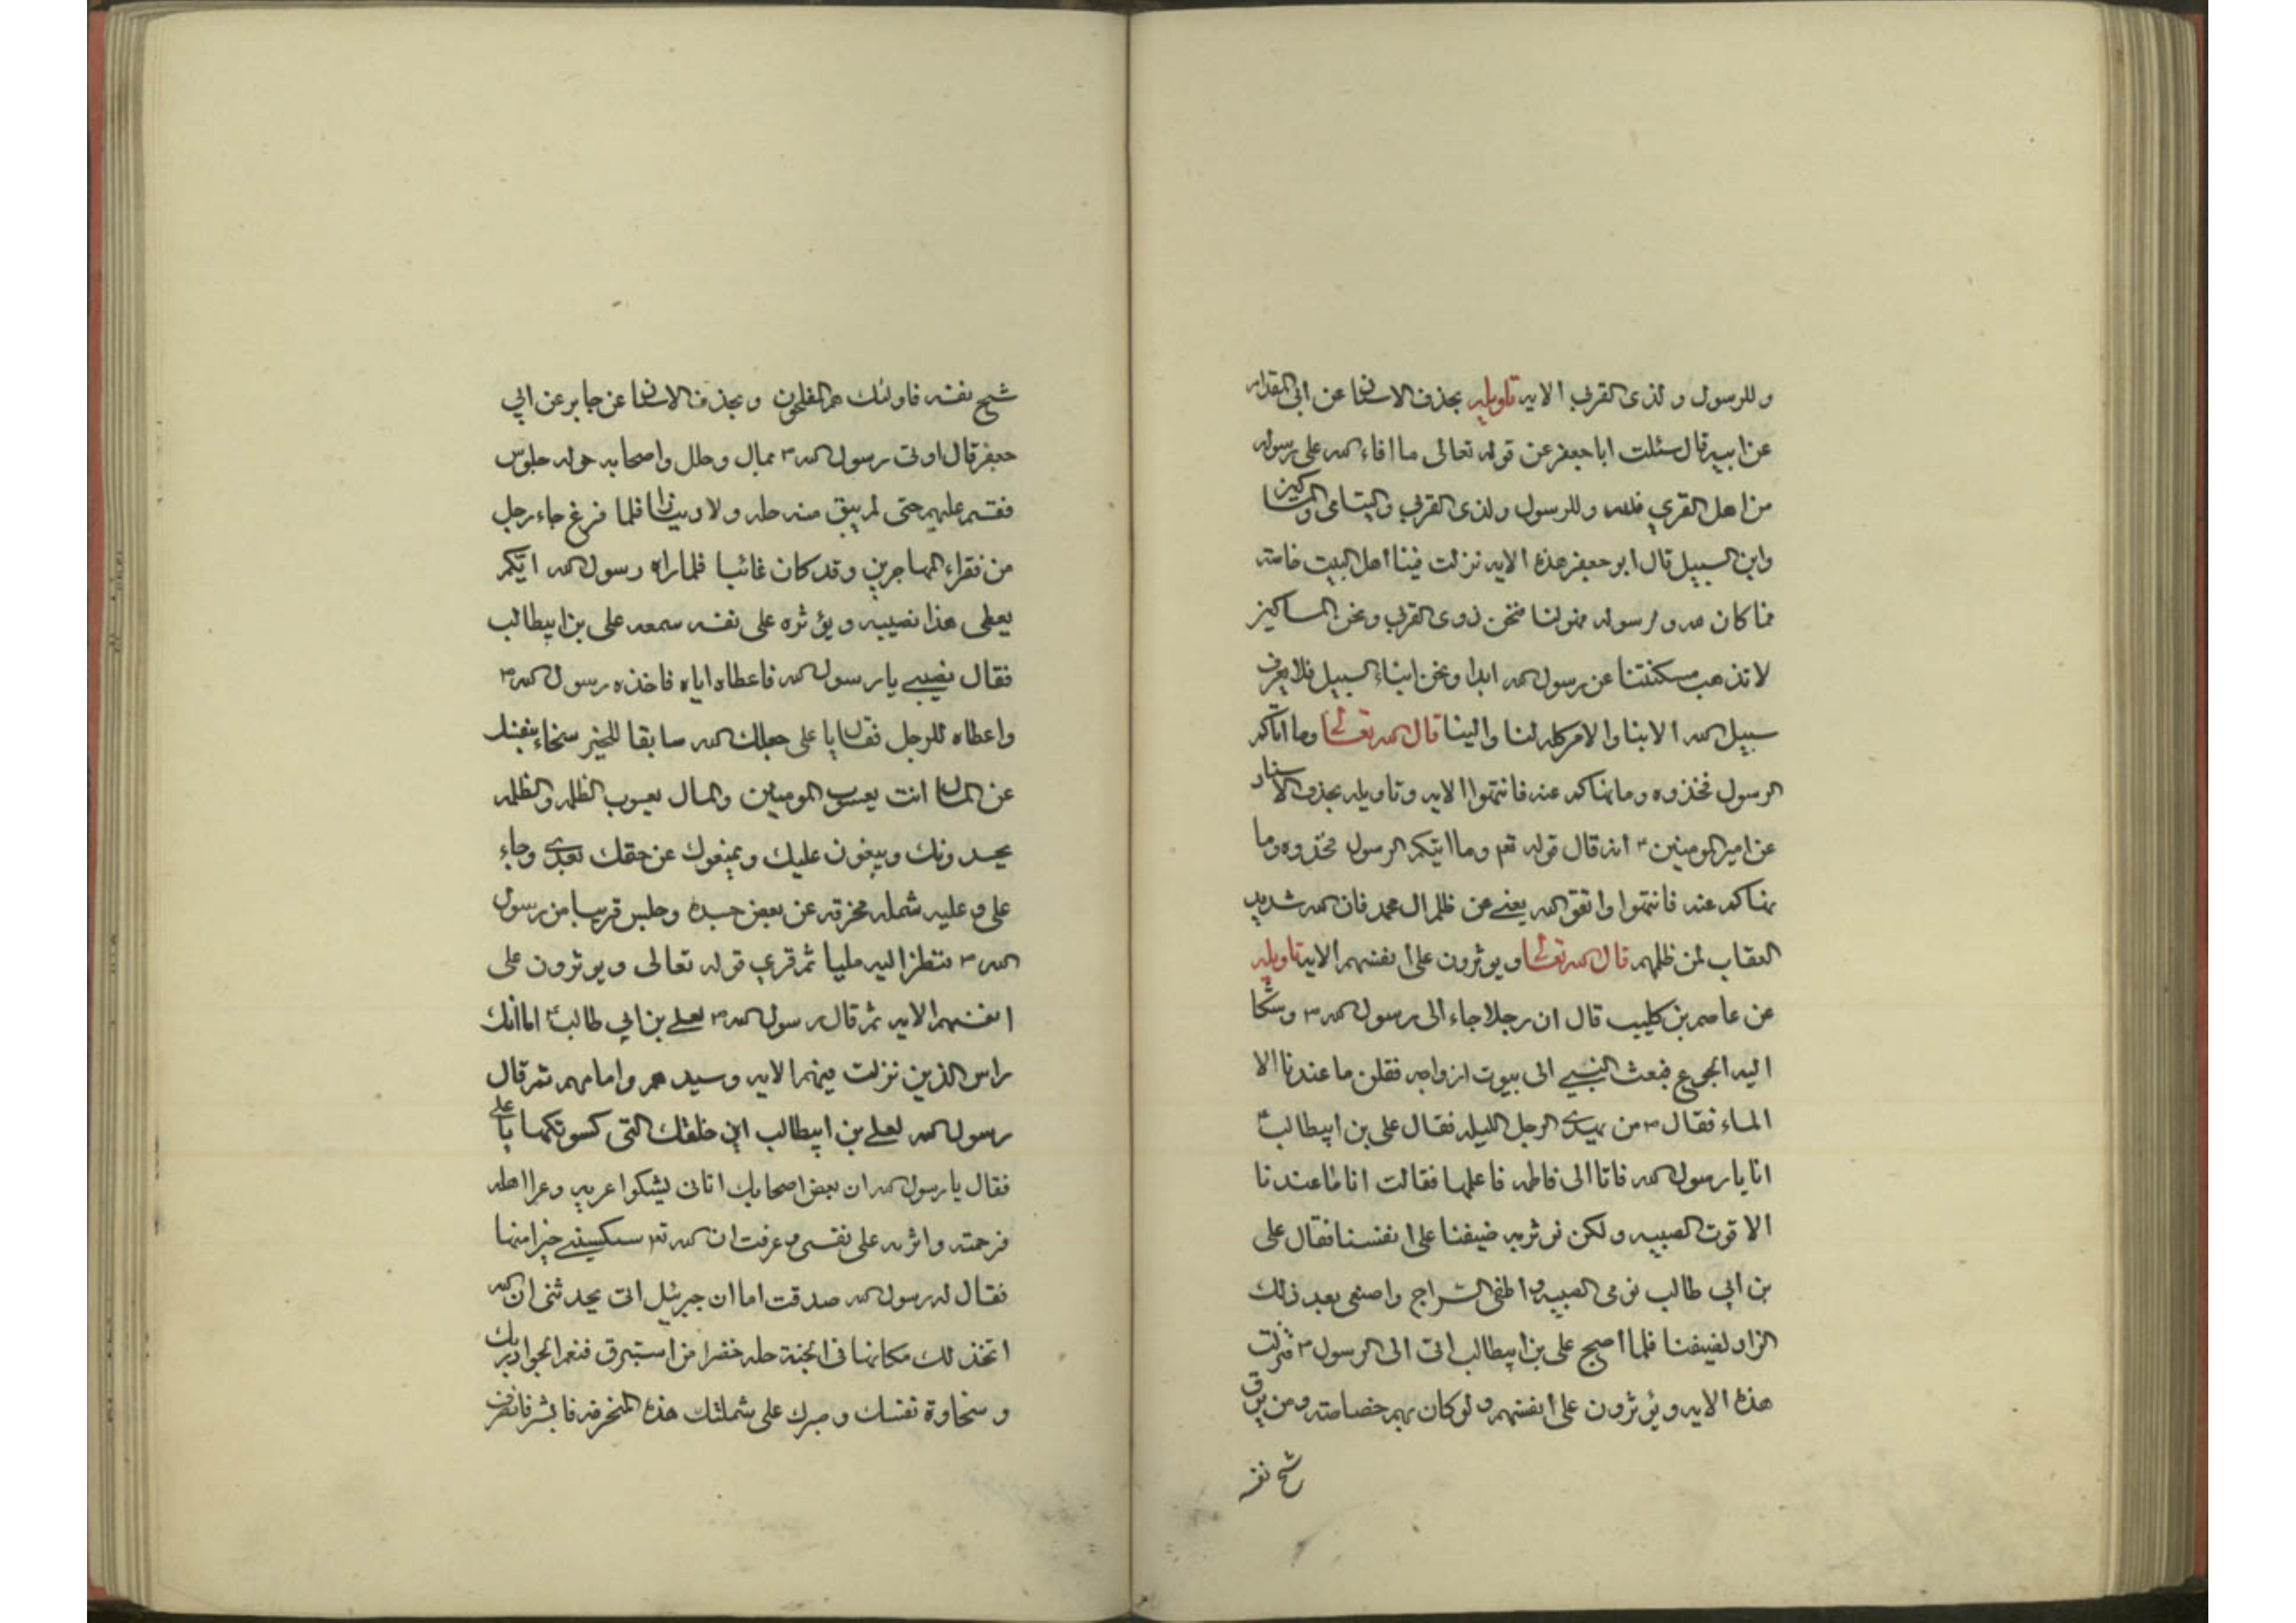 وللرسول ولذى القربى الايه تاويله بحذف الاسناد عن ابى المقدام
عن ابيه قال سئلت ابا جعفر عن قوله تعالى ما افاء الله على رسوله
من اهل القرى فلله وللرسول ولذى القربى واليتامى والمساكين
وابن السبيل قال ابو جعفر هذه الايه نزلت فينا اهل البيت خاصته
فما كان لله ولرسوله فهو لنا فنحن ذوى القربى ونحن المساكين
لا تذهب مسكنتنا عن رسول الله ابدا ونحن ابناء السبيل فلا يعرف
سبيل الله الا بنا والامر كله لنا والينا قال الله تعالى وما اتاكم
الرسول فخذوه وما نهاكم عنه فانتهوا الايه وتاويله بحذف الاسناد
عن امير المومنين انه قال قوله تعم وما اتيكم الرسول فخذوه وما
نهاكم عنه فانتهوا واتقو الله يعنے عن ظلم ال محمد فان الله شديد
العقاب لمن ظلمهم قال الله تعالى ويوثرون على انفسهم الايه تاويله
عن عاصم بن كليب قال ان رجلا جاء الى رسول الله ص وشكا
اليه الجوع فبعث النبے الى بيوت ازواجه فقلن ما عندنا الا
الماء فقال ص من لهذا الرجل الليله فقال على بن ابيطالب ع
انا يا رسول الله فاتا الى فاطمه فاعلمها فقالت انا ما عندنا
الا قوت الصبيه ولكن نوثر به ضيفنا على انفسنا فقال على
بن ابى طالب نومى الصبيه واطفى السراج واصنعى بعد ذلك
الزاد لضيفنا فلما اصبح على بن ابيطالب اتى الى الرسول ص فنزلت
هذه الايه ويؤثرون على انفسهم ولو كان بهم خصاصته ومن يوق
شح نفسه
شح نفسه فاولئك هم المفلحون وبحذف الاسناد عن جابر عن ابى
جعفر قال اوتى رسول الله ص بمال وحلل واصحابه حوله جلوس
فقسم عليهم حتى لم يبق منه حله ولا دينارا فلما فرغ جاء رجل
من فقراء المهاجرين وقد كان غائبا فلما راه رسول الله ايكم
يعطى هذا نصيبه ويؤثره على نفسه سمعه على بن ابيطالب
فقال نصيبے يا رسول الله فاعطاه اياه فاخذه رسول الله ص
واعطاه للرجل فقال يا على جعلك الله سابقا للخير سخاء بنفسك
عن المال انت يعسوب المومنين والمال يعسوب الظلمه والظلمه
يحسدونك ويبغون عليك ويمنعوك عن حقك بعدى وجاء
على وعليه شمله مخرقه عن بعض جسده وجلس قريبا من رسول
الله ص فنظر اليه مليا ثم قرى قوله تعالى ويوثرون على
انفسهم الايه ثم قال رسول الله ص لعلے بن ابى طالب ع اما انك
راس الذين نزلت فيهم الايه وسيدهم وامامهم ثم قال
رسول الله لعلے بن ابيطالب اين حلتك التى كسوتكها يا على
فقال يا رسول الله ان بعض اصحابك اتانى يشكوا عريه وعرا اهله
فرحمته واثرته على نفسى وعرفت ان الله تعم سيكسينے خيرا منها
فقال له رسول الله صدقت اما ان جبرئيل اتى يحدثنى ان الله
اتخذ لك مكانها فى الجنة حله خضرا من استبرق فنعم الجواد ربك
وسخاوة نفسك وصبرك على شملتك هذه المنخرقه فابشر فانصرف